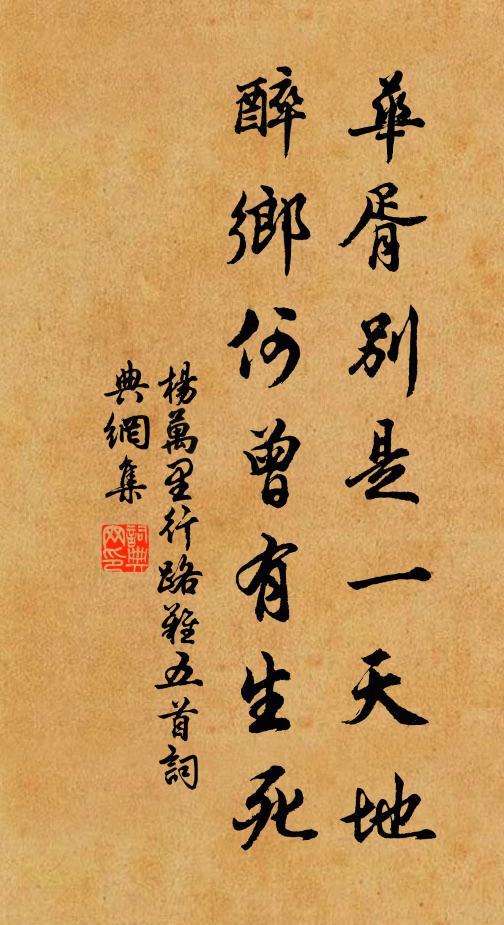 華胥別是一天地
醉鄉何曾有生死
楊萬里行路難五首詞
典網集
詞典
网印